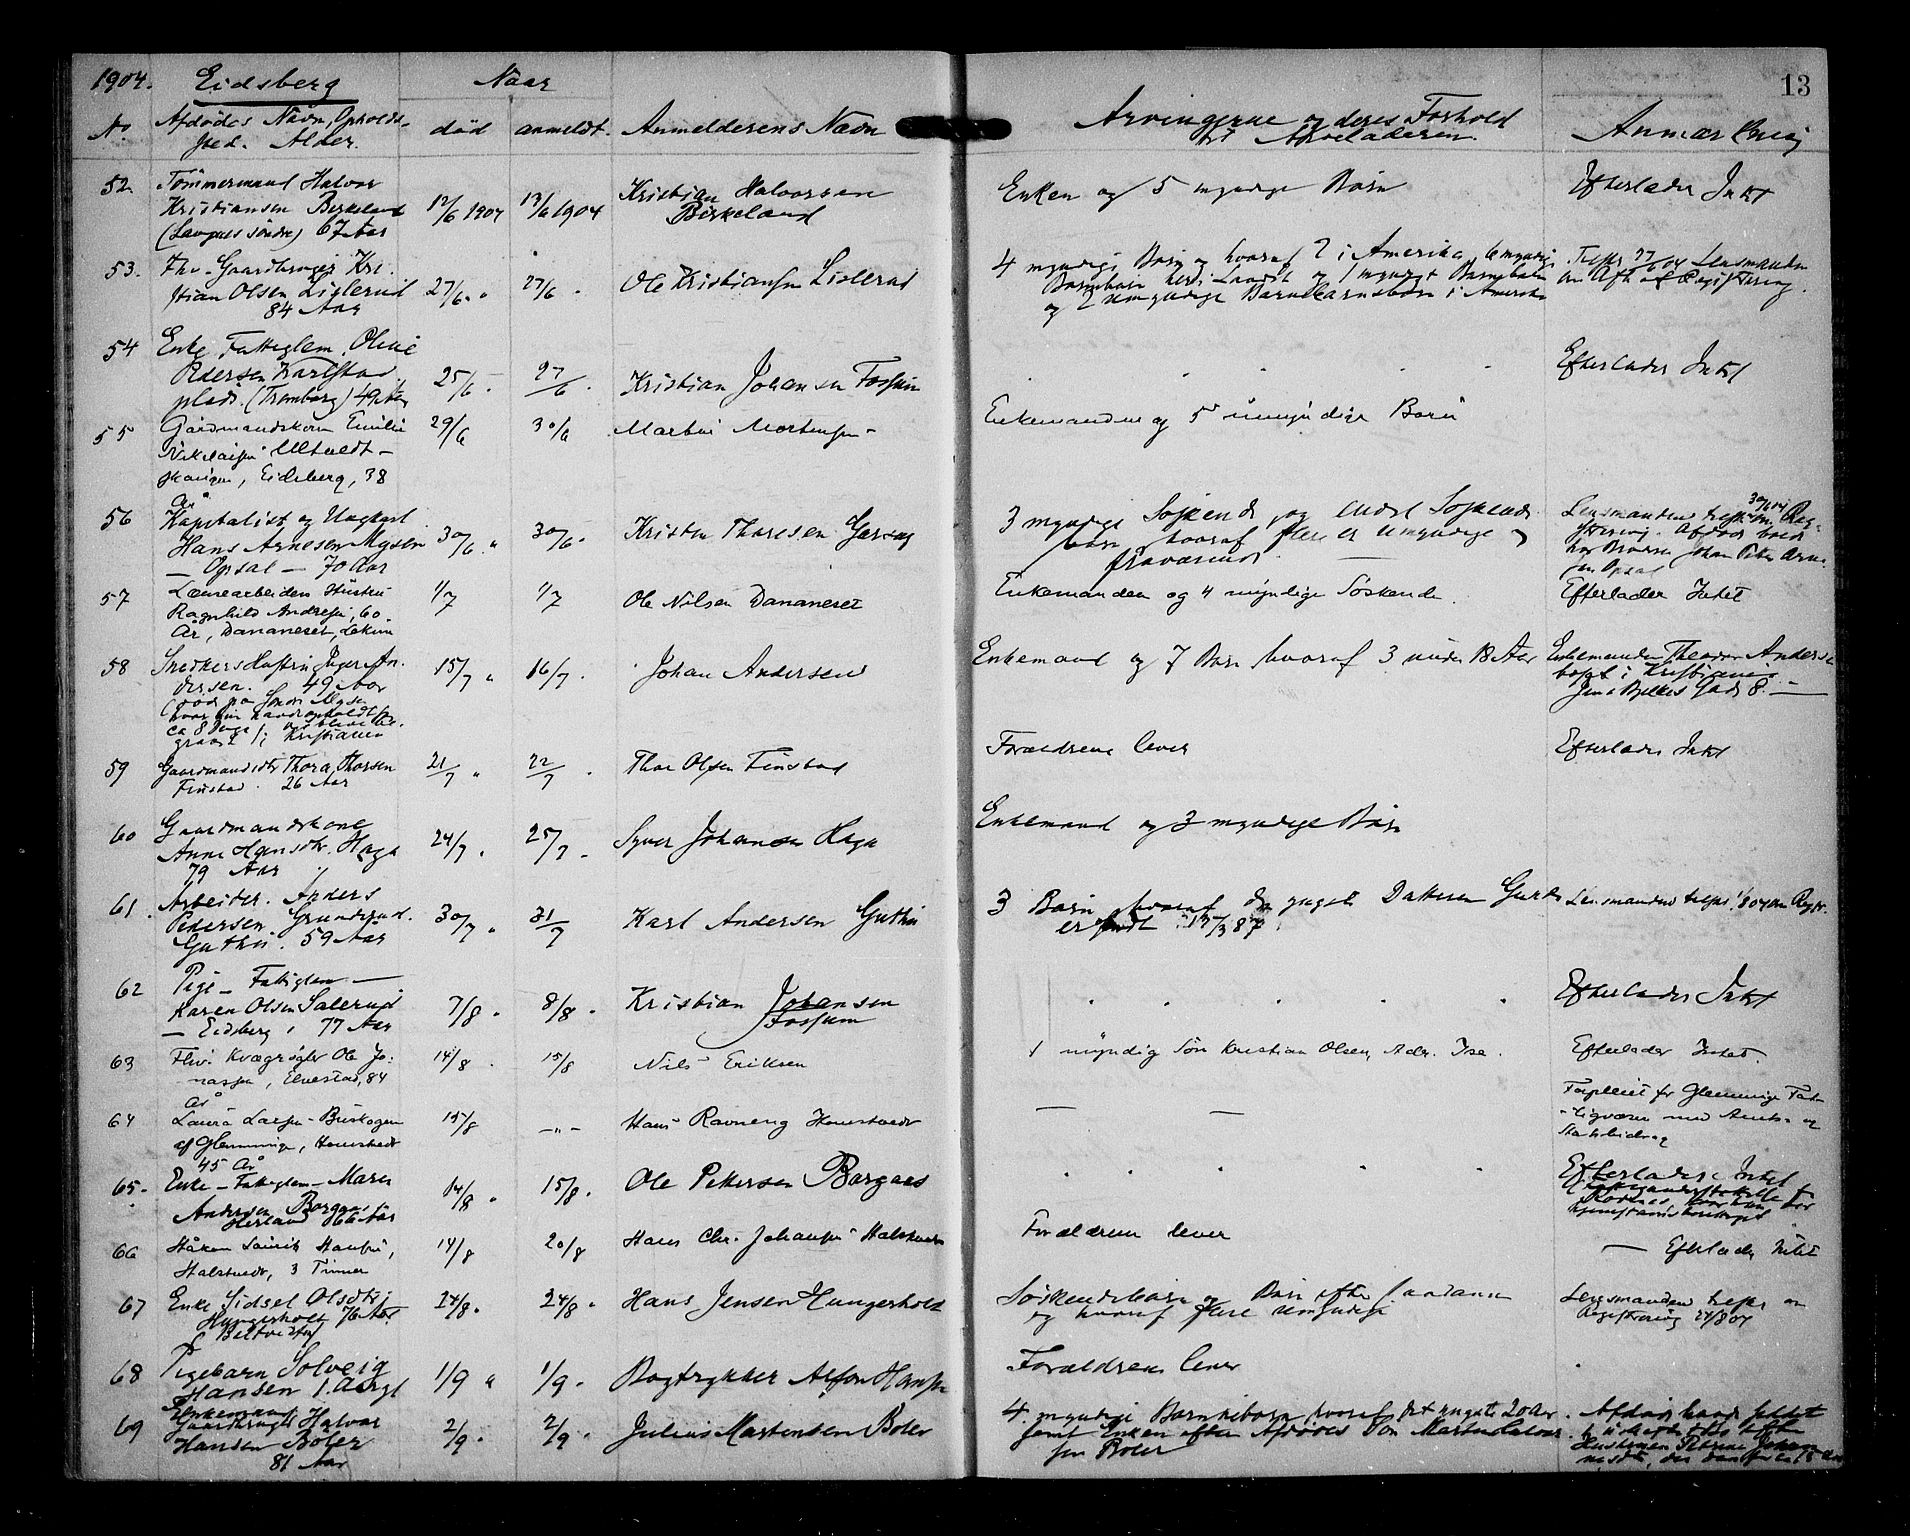 1904. Eidsberg Naar 13
No Afdødes Navn, Opholds- død anmeldt. Anmelderens Navn Arvingerne og deres Forhold Anmærkning
sted. Alder. til Arveladeren.
52. Tømmermand Halvor
Kristiansen Berkeland 12/6 1904 13/6 1904 Kristian Halvorsen Enken og 5 myndige Børn Efterlader Intet
67 Aar Birkeland
53. Fhv. Gaardbruger Kri-
stian Olsen Lislerud 27/6 " 27/6 . Ole Kristiansen Lislerud 4 myndige Børn hvoraf 2 i Amerika, 27/6 04 Lensmanden
84 Aar Barnebørn her i Landet og 1 myndigt Barnebarn
og 2 umyndige Barnebarnsbørn i Amerika
54 Enke Fattiglem, Oline
Pedersen Karlstad 25/6 . 27/6 . Kristian Johansen Fossum Efterlader Intet
plads. (Tromborg) 49 Aar
55 Gårdmandskone Emilie 29/6 30/6 Martin Mortensen - Enkemanden og 5 umyndige Børn
Nikolaisen
Eidsberg, 38
År
56 Kapitalist og Ungkarl
Hans Arnesen Mysen 30/6 " 30/6 . Kristen Thoresen 3 myndige Søskende og endel Søskende- Lensmanden 30/6 04
— Opsal — 70 Aar børn hvoraf flere er umyndige
fraværende Johan Peter
Opsal
57 Hustru 1/7 1/7 Ole Nilsen Dananeset Enkemanden og 4 myndige Søskende. Efterlader Intet
Ragnhild Andresen, 60
År, Dananeset,
58 Snedkers Hustru Inger An- 15/7 " 16/7 . Johan Andersen Enkemand og 7 Børn hvoraf 3 under 18 Aar Enkemanden Theodor Andersen
dersen. 49 Aar bosat i Kristiania
død på Mysen Jens Bjelkes Gade 8. —
ca 8 Dage
i Kristiania
59 Gaardmandsdtr Thora Thorsen 21/7 " 22/7 . Thor Olsen Finstad Forældrene lever Efterlader Intet
Finstad. 26 Aar
60 Gaardmandskone
Anne Hansdtr. Haga 24/7 . 25/7 . Syver Johansen Haga Enkemand og 3 myndige Børn
79 Aar
61. Arbeider. Anders
Pedersen. Grundsrud. 30/7 " 31/7 Karl Andersen Guthu 3 Børn hvoraf den yngste Datteren er født Lensmanden 1/8 04 om Regtr.
Guthu. 59 Aar
62 Pige — Fattiglem —
Karen Olsen Salerud 7/8 . 8/8 . Kristian Johansen Efterlader Intet
— Eidsberg, 77 Aar Fossum
63 Fhv. Ole Jo- 14/8 . 15/8 Nils Eriksen 1 myndig Søn Kristian Olsen, Adr. Ise. Efterlader Intet.
nassen, Elvestad, 84
År
64 Laura Larsen - Buskogen 15/8 -"- Hans Ravneng Homstvedt — — Forpleiet for Glemminge Fat-
af Glemminge, Homstvedt tigvæsen med Amts- og
45 År Statsbidrag
65. Enke — Fattiglem — Maren 14/8 " 15/8 . Ole Pettersen Borgaas Efterlader Intet
Andersen Borgaas
Herland 66 Aar
66 Håkon Hansen, 14/8 20/8 Hans Chr. Johansen Halstvedt Forældrene lever — Efterlader Intet
Halstvedt, 3 Timer
67 Enke Sidsel Olsdtr. 24/8 . 24/8 . Hans Jensen Hungerholt Søskendebørn og Børn efter saadanne Lensmanden om
Hungerholt 76 Aar og hvoraf flere umyndige Registrering 24/8 04
68 Pigebarn Solveig
Hansen 1 Aar gl 1/9 " 1/9 . Bogtrykker Alfon Hansen Forældrene lever
69 Enkemand
Gaardbruger Halvor 2/9 . 2/9 . Julius Martensen Boler 4 myndige Barnebørn hvoraf det yngste 20 Aar. Afdøde
Hansen Boler samt Enken efter Afdødes Søn
81 Aar Boler Hustruen Petrine